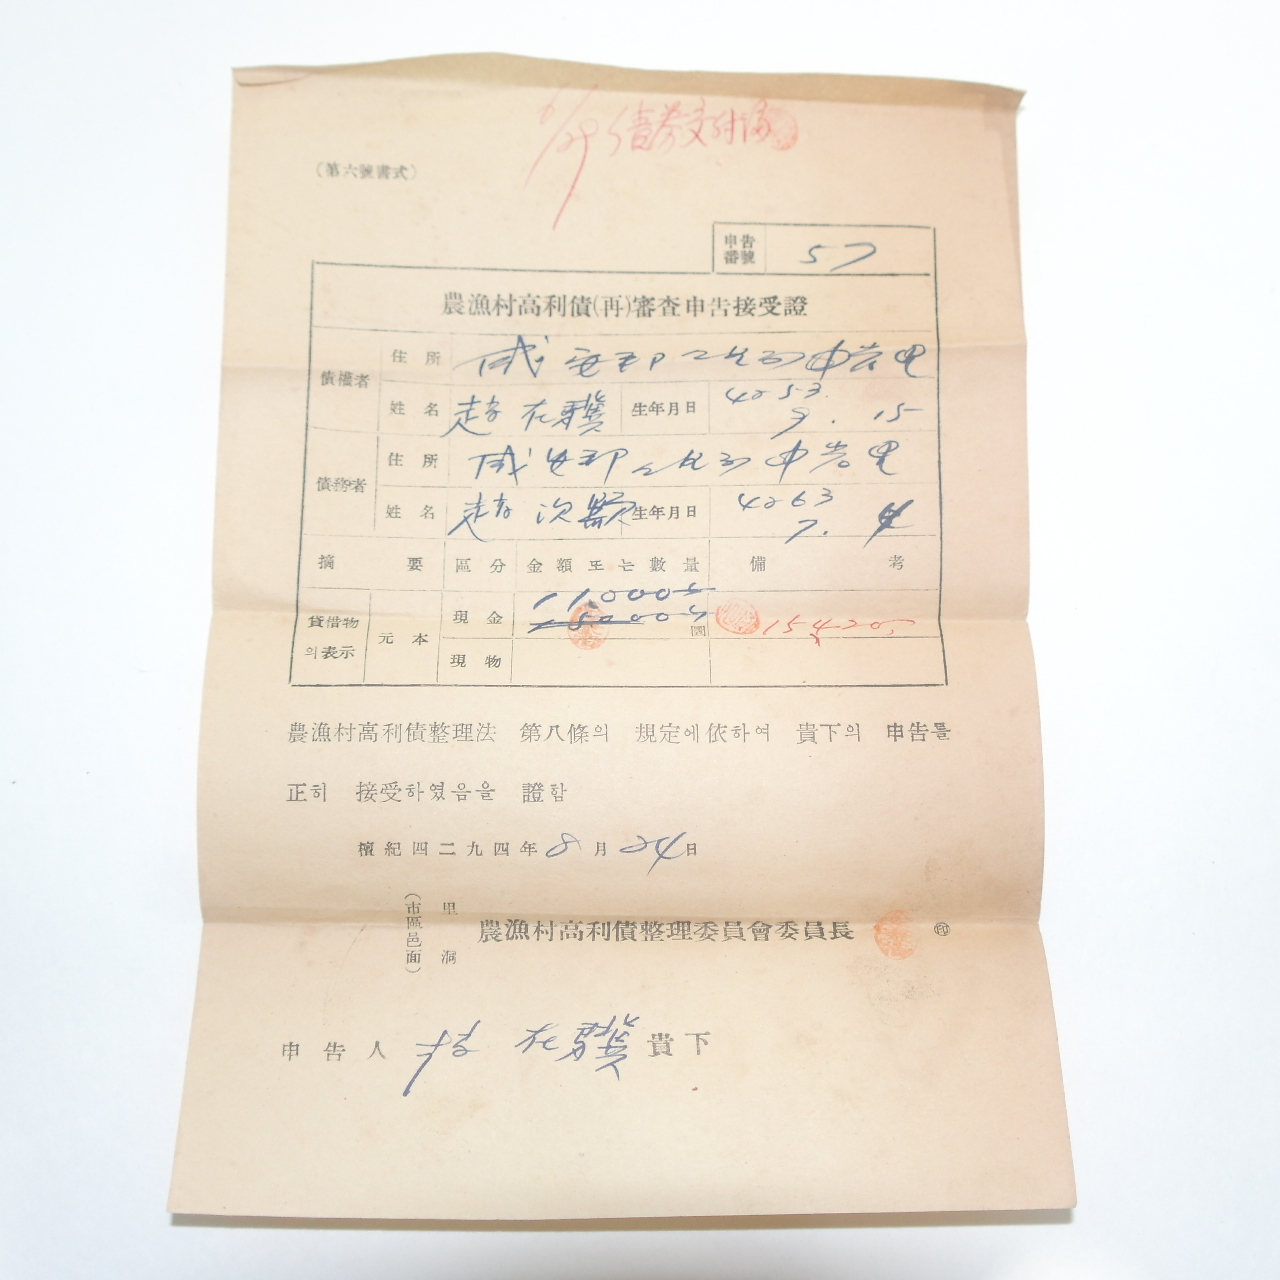 6/29 債券交付済
(第六號書式)
申告番號 57
農漁村高利債(再)審査申告接受證
債權者 住所 咸安郡 中岩里
姓名 趙在驥 生年月日 4253. 9. 15
債務者 住所 咸安郡 中岩里
姓名 趙次顯 生年月日 4263 7. 4
摘要 區分 金額또는數量 備考
貸借物의表示 元本 現金 11,000 圜 15420
現物
農漁村高利債整理法 第八條의 規定에依하여 貴下의 申告를
正히 接受하였음을 證함
檀紀四二九四年 8月 24日
(市區邑面) 里洞 農漁村高利債整理委員會委員長 ㊞
申告人 趙在驥 貴下